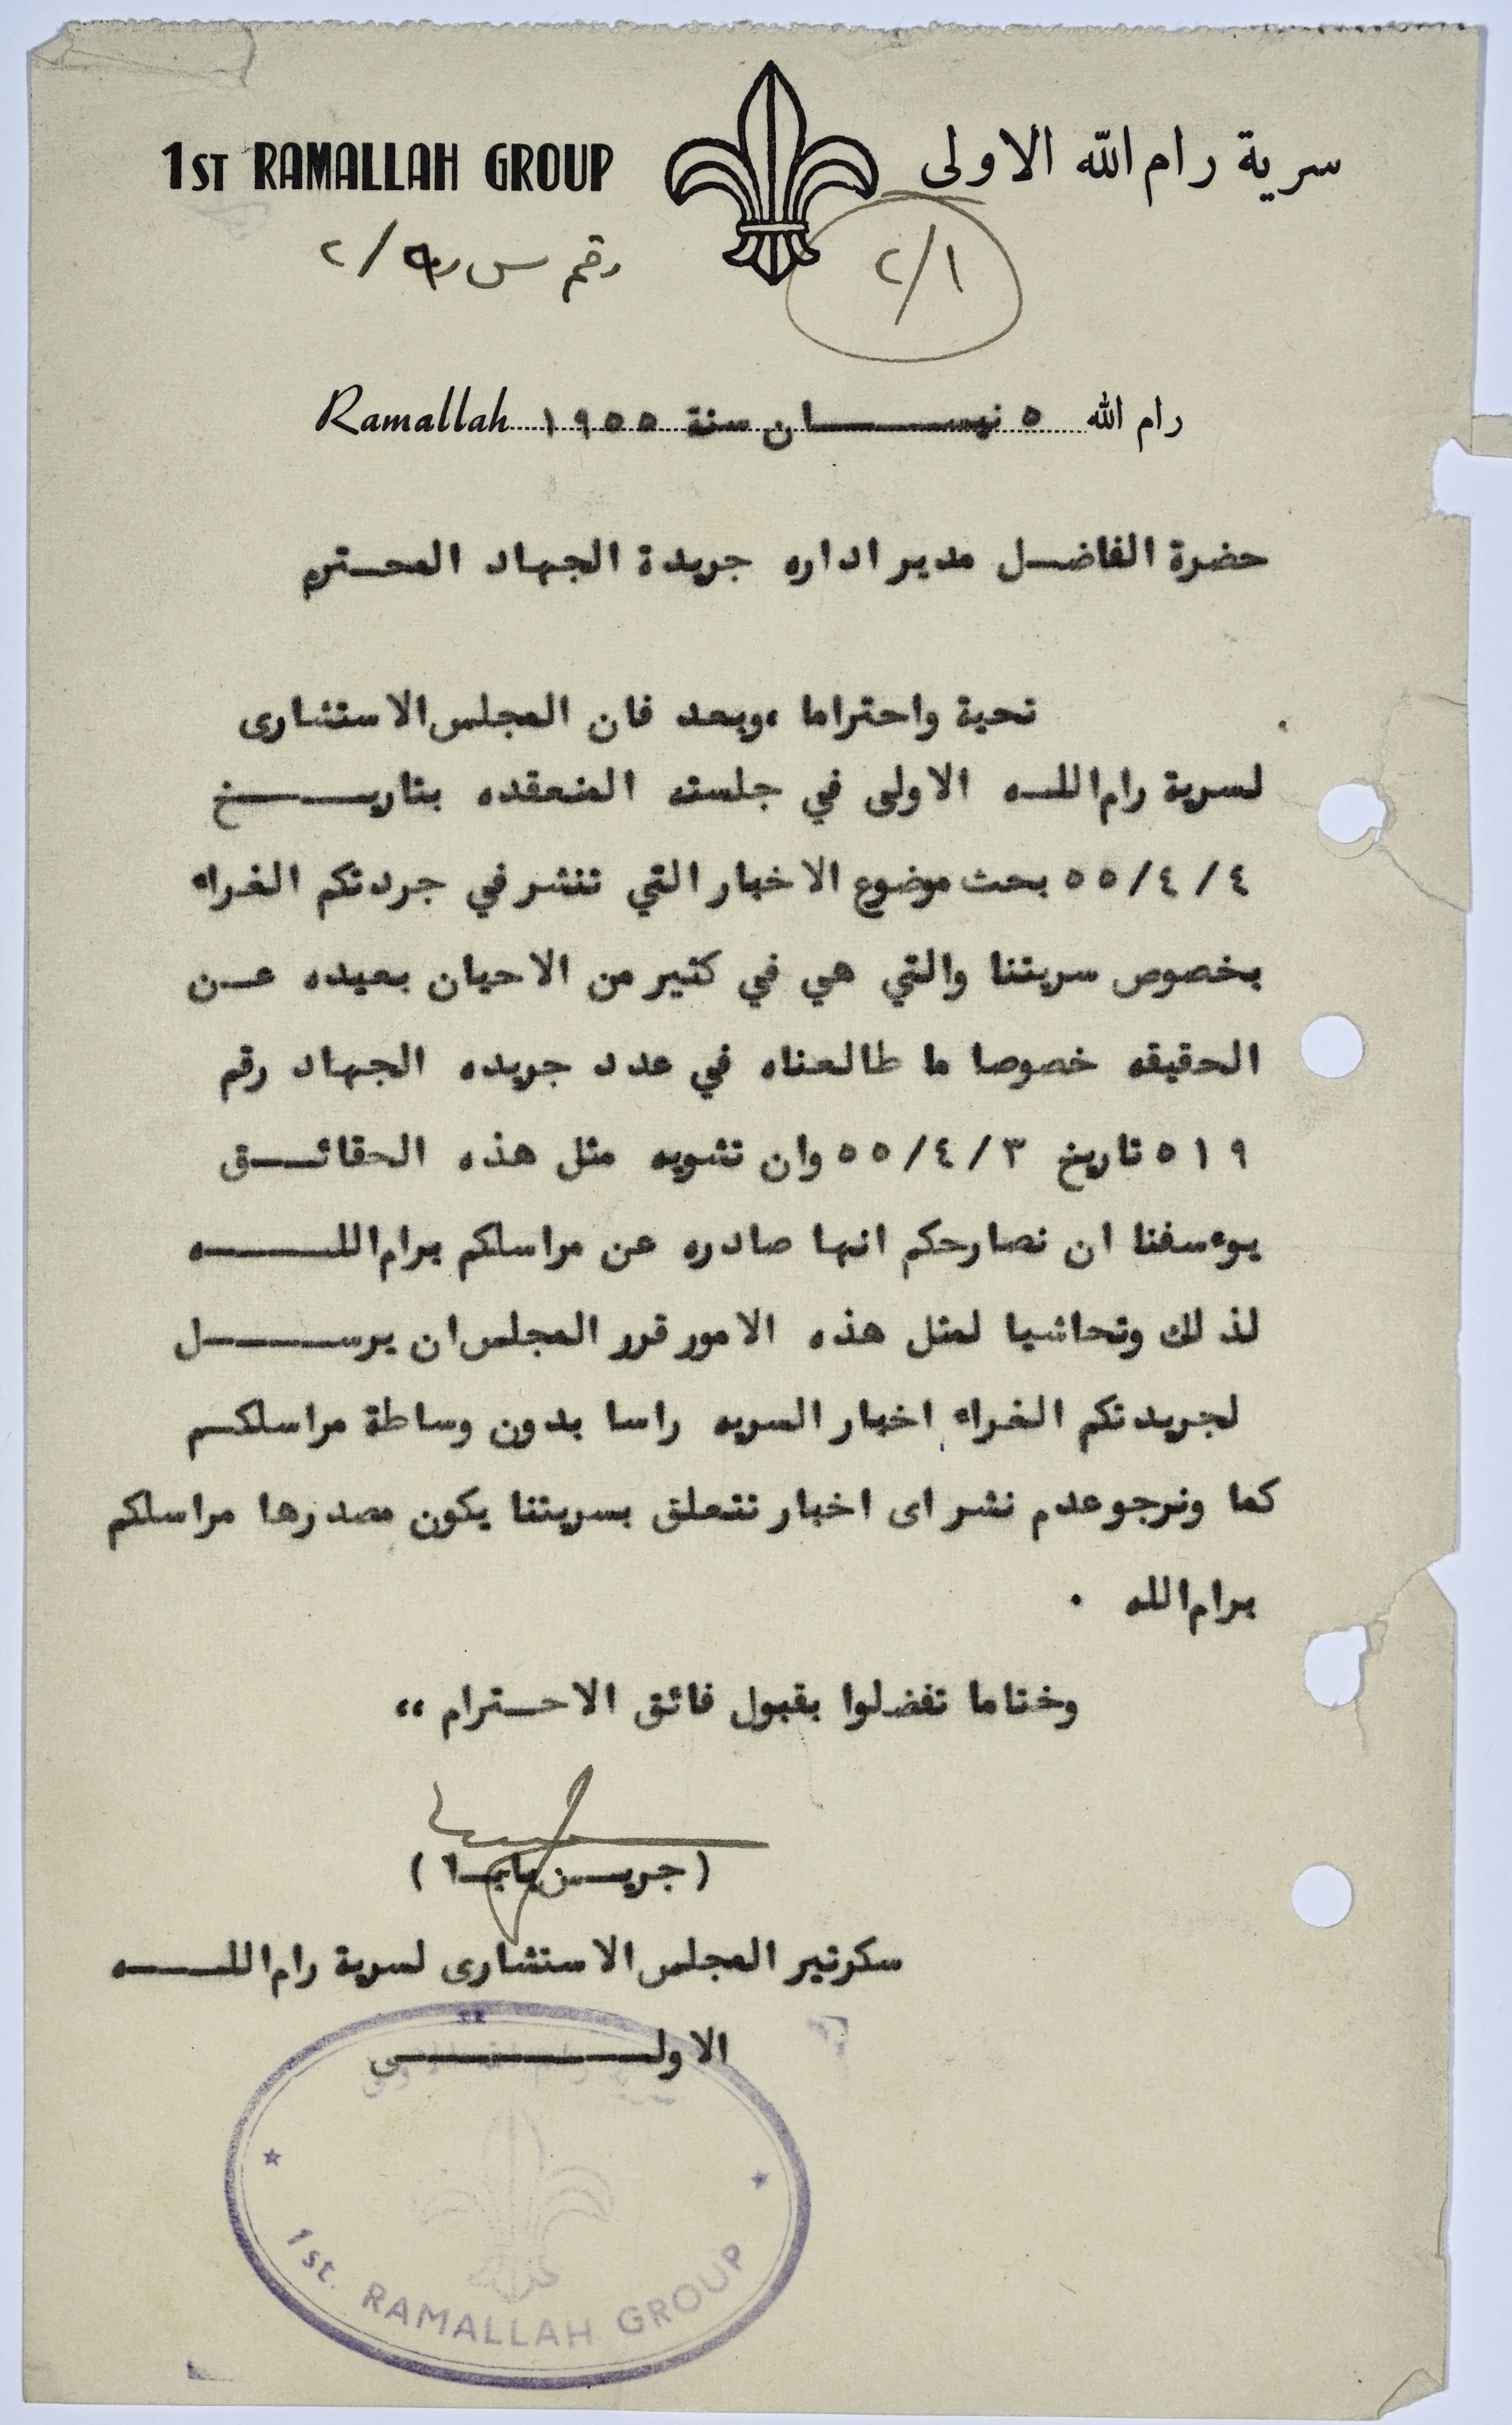 1ST RAMALLAH GROUP سرية رام الله الاولى
رقم س ر /٢
٢/١
رام الله ٥ نيسان سنة ١٩٥٥ Ramallah
حضرة الفاضل مدير اداره جريدة الجهاد المحترم
تحية واحتراما ،وبعد فان المجلس الاستشارى
لسرية رام الله الاولى في جلسته المنعقده بتاريخ
٤/٤/٥٥ بحث موضوع الاخبار التي تنشر في جردتكم الغراء
بخصوص سريتنا والتي هي في كثير من الاحيان بعيده عن
الحقيقه خصوصا ما طالعناه في عدد جريده الجهاد رقم
٥١٩ تاريخ ٣/٤/٥٥ وان تشويه مثل هذه الحقائق
يوءسفنا ان نصارحكم انها صادره عن مراسلكم برام الله
لذلك وتحاشيا لمثل هذه الامور قرر المجلس ان يرسل
لجريدتكم الغراء اخبار السريه راسا بدون وساطة مراسلكم
كما ونرجو عدم نشر اى اخبار تتعلق بسريتنا يكون مصدرها مراسلكم
برام الله .
وختاما تفضلوا بقبول فائق الاحترام ،،
(جريس
سكرتير المجلس الاستشارى لسرية رام الله
الاولى
1st. RAMALLAH GROUP